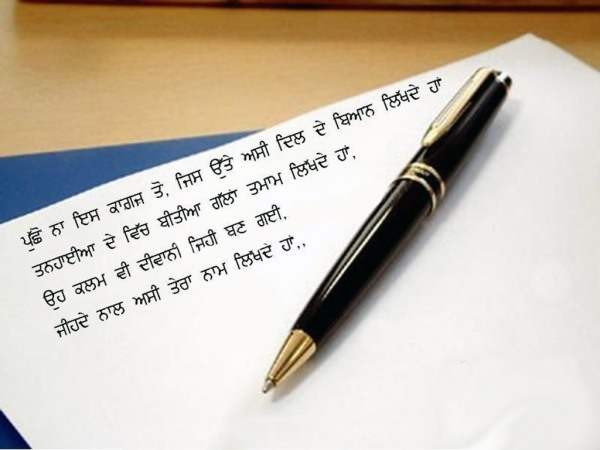 ਪੁੱਛੋ ਨਾ ਇਸ ਕਾਗਜ਼ ਤੋਂ, ਜਿਸ ਉੱਤੇ ਅਸੀ ਦਿਲ ਦੇ ਬਿਆਨ ਲਿੱਖਦੇ ਹਾਂ
ਤਨਹਾਈਆ ਦੇ ਵਿੱਚ ਬੀਤੀਆ ਗੱਲਾਂ ਤਮਾਮ ਲਿੱਖਦੇ ਹਾਂ,
ਉਹ ਕਲਮ ਵੀ ਦੀਵਾਨੀ ਜਿਹੀ ਬਣ ਗਈ,
ਜੀਹਦੇ ਨਾਲ ਅਸੀ ਤੇਰਾ ਨਾਮ ਲਿੱਖਦੇ ਹਾਂ,,